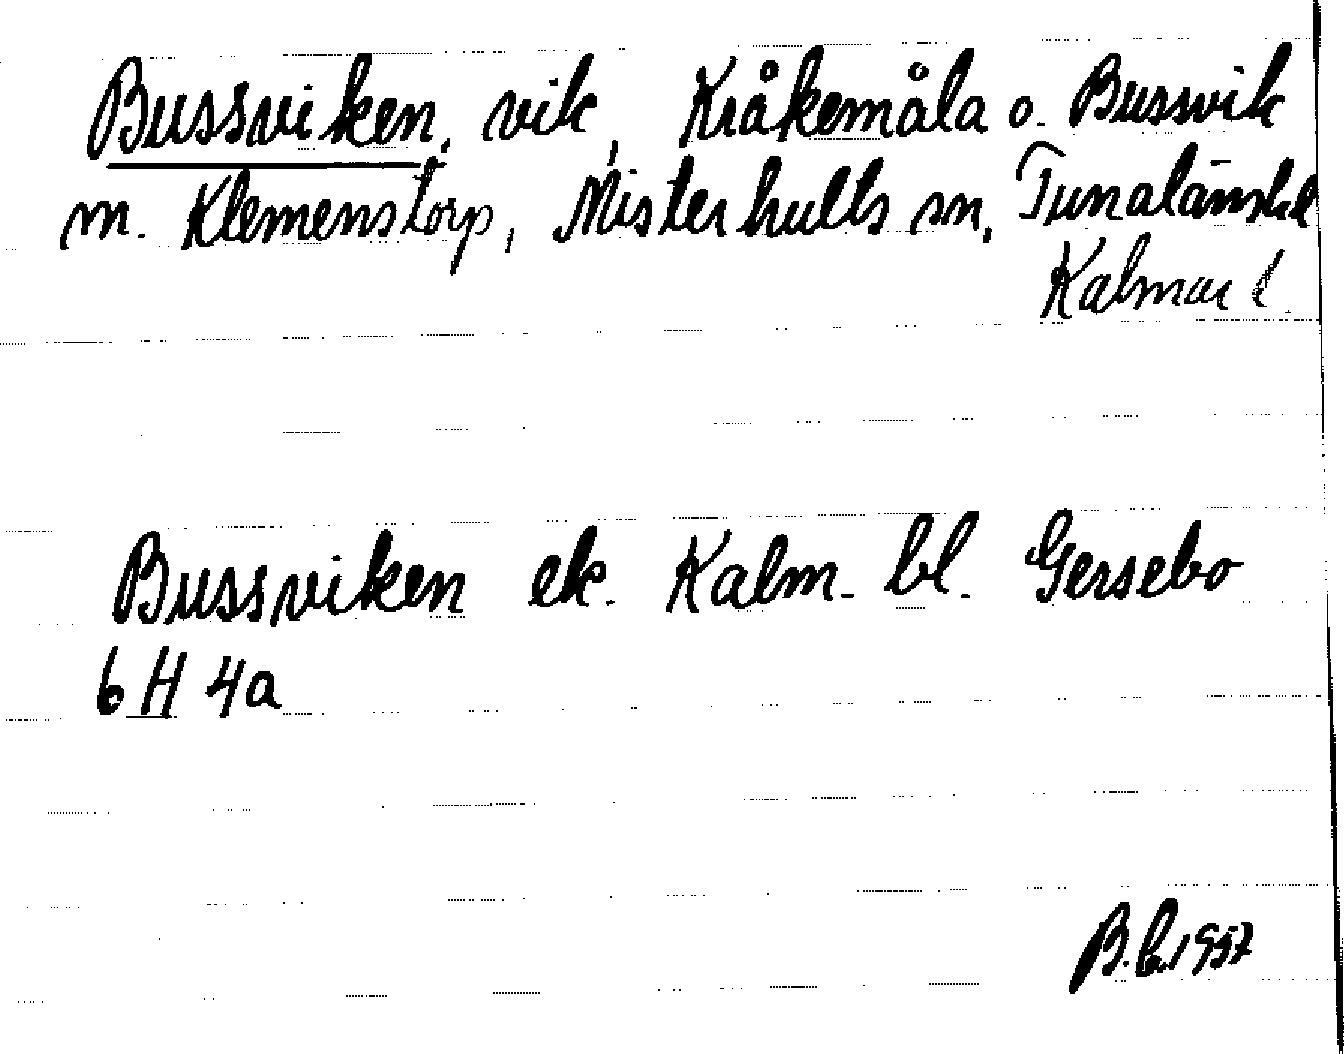 Bussviken, vik, Kråkemåla o. Bussvik
m. Klemenstorp, Misterhults sn, Tunaläns hd
Kalmar l.
Bussviken ek. Kalm. bl. Gersebo
6 H 4a
1957